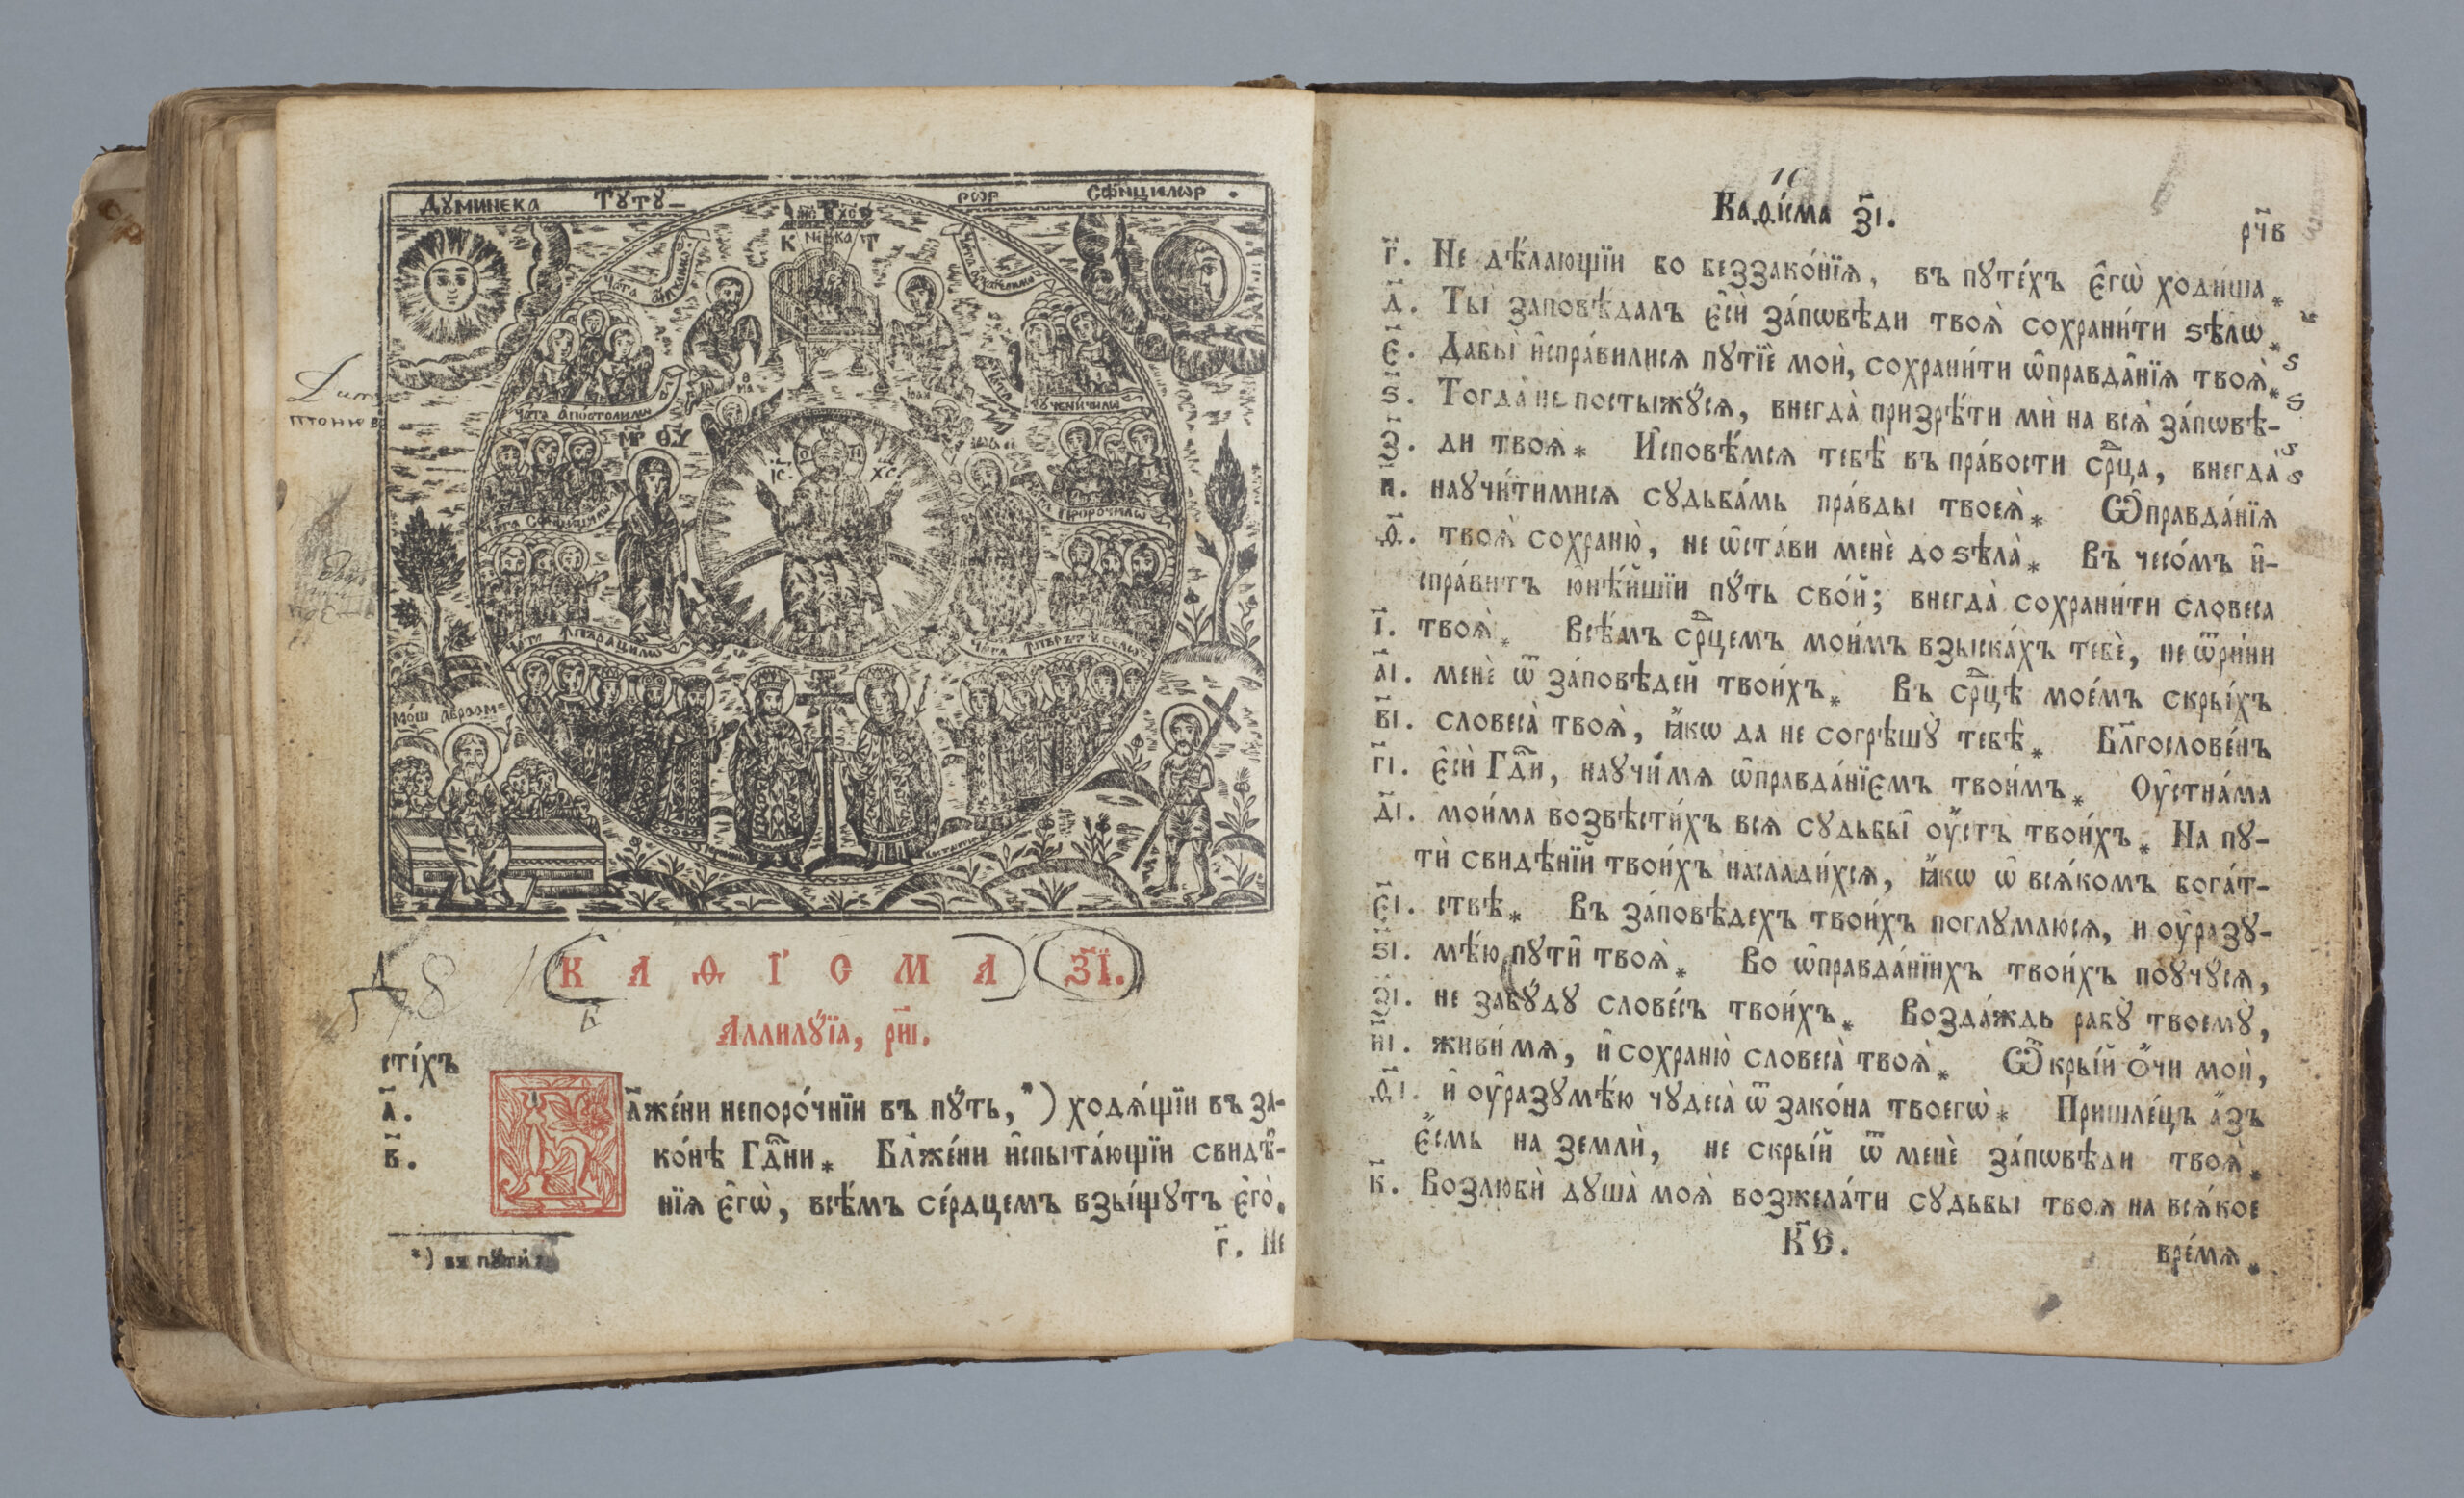 Дꙋминека Тꙋтꙋ– рωр Сфн҃цилωр •
І҃С Х҃С
К НИ КА Т
Чата
Чата Апостолилω
М҃Р Ѳ҃Ꙋ
І҃С. Х҃С.
Мош Авраам
К А Ѳ І С М А З҃Ї.
Аллилꙋ́їа, рн҃і.
стіхъ
а҃. Бл҃же́ни непоро́чнїи въ пꙋ́ть, *) ходѧ́щїи въ за-
в҃. ко́нѣ Гд҃ни * Бл҃же́ни и҆спыта́ющїи свидѣ́-
нїѧ є҆гѡ̀, всѣ́мъ се́рдцемъ взы́щꙋтъ є҆го̀.
г҃. Не
*) въ пꙋти̑
Каѳі́сма з҃і.
рч҃в
г҃. Не дѣ́лающїи бо беззако́нїѧ, въ пꙋте́хъ є҆гѡ̀ ходи́ша *
д҃. Ты̀ заповѣ́далъ є҆сѝ за́пѡвѣди твоѧ̀ сохрани́ти ѕѣлѡ *
є҃. Дабы̀ и҆спра́вилисѧ пꙋтїѐ моѝ, сохрани́ти ѡ҆правда̑нїѧ твоѧ̀ *
ѕ҃. Тогда̀ не постыжꙋ́сѧ, внегда̀ призрѣ́ти мѝ на всѧ̀ за́пѡвѣ-
з҃. ди твоѧ̀ * И҆сповѣ́мсѧ тебѣ̀ въ пра́вости ср҃ца, внегда̀
и҃. наꙋчи́тимисѧ сꙋдьба́мъ пра́вды твоеѧ̀ * Ѡ҆правда́нїѧ
ѳ҃. твоѧ̀ сохраню̀, не ѡ҆ста́ви менѐ до ѕѣла̀ * Въ чесо́мъ и҆-
спра́витъ юнѣ́йшїи пꙋ́ть сво́й; внегда̀ сохрани́ти словеса
і҃. твоѧ̀ * Всѣ́мъ ср҃цемъ мои́мъ взыска́хъ тебѐ, не ѿри́ни
а҃і. менѐ ѿ за́повѣдей твои́хъ * Въ ср҃цѣ мое́мъ скры́хъ
в҃і. словеса̀ твоѧ̀, ꙗ҆́кѡ да не согрѣшꙋ̀ тебѣ̀ * Бл҃гослове́нъ
г҃і. є҆сѝ Гд҃и, наꙋчи́мѧ ѡ҆правда́нїємъ твои́мъ * Оу҆стна́ма
д҃і. мои́ма возвѣсти́хъ всѧ сꙋдьбы̑ оу҆́стъ твои́хъ * На пꙋ-
тѝ свидѣ́нїй твои́хъ наслади́хсѧ, ꙗ҆́кѡ ѡ҆ всѧ́комъ бога́т-
є҃і. ствѣ * Въ за́повѣдехъ твои́хъ поглꙋмлюсѧ, и оу҆разꙋ-
ѕ҃і. мѣ́ю пꙋти̑ твоѧ̀ * Во ѡ҆правда́нїихъ твои́хъ поꙋчꙋ́сѧ,
з҃і. не забꙋ́дꙋ слове́съ твои́хъ * Возда́ждь рабꙋ̀ твоемꙋ̀,
и҃і. живи́мѧ, и҆ сохраню̀ словеса̀ твоѧ̀ * Ѿкры́й ѻ҆́чи моѝ,
ѳ҃і. и҆ оу҆разꙋмѣ́ю чꙋдеса̀ ѿ зако́на твоегѡ̀ * Пришле́цъ а҆́зъ
є҆́смь на землѝ, не скры́й ѿ менѐ за́пѡвѣди твоѧ̀ *
к҃. Возлюбѝ дꙋша̀ моѧ̀ возжела́ти сꙋдьбы твоѧ на всѧ́кое
К҃Ѳ. вре́мѧ *